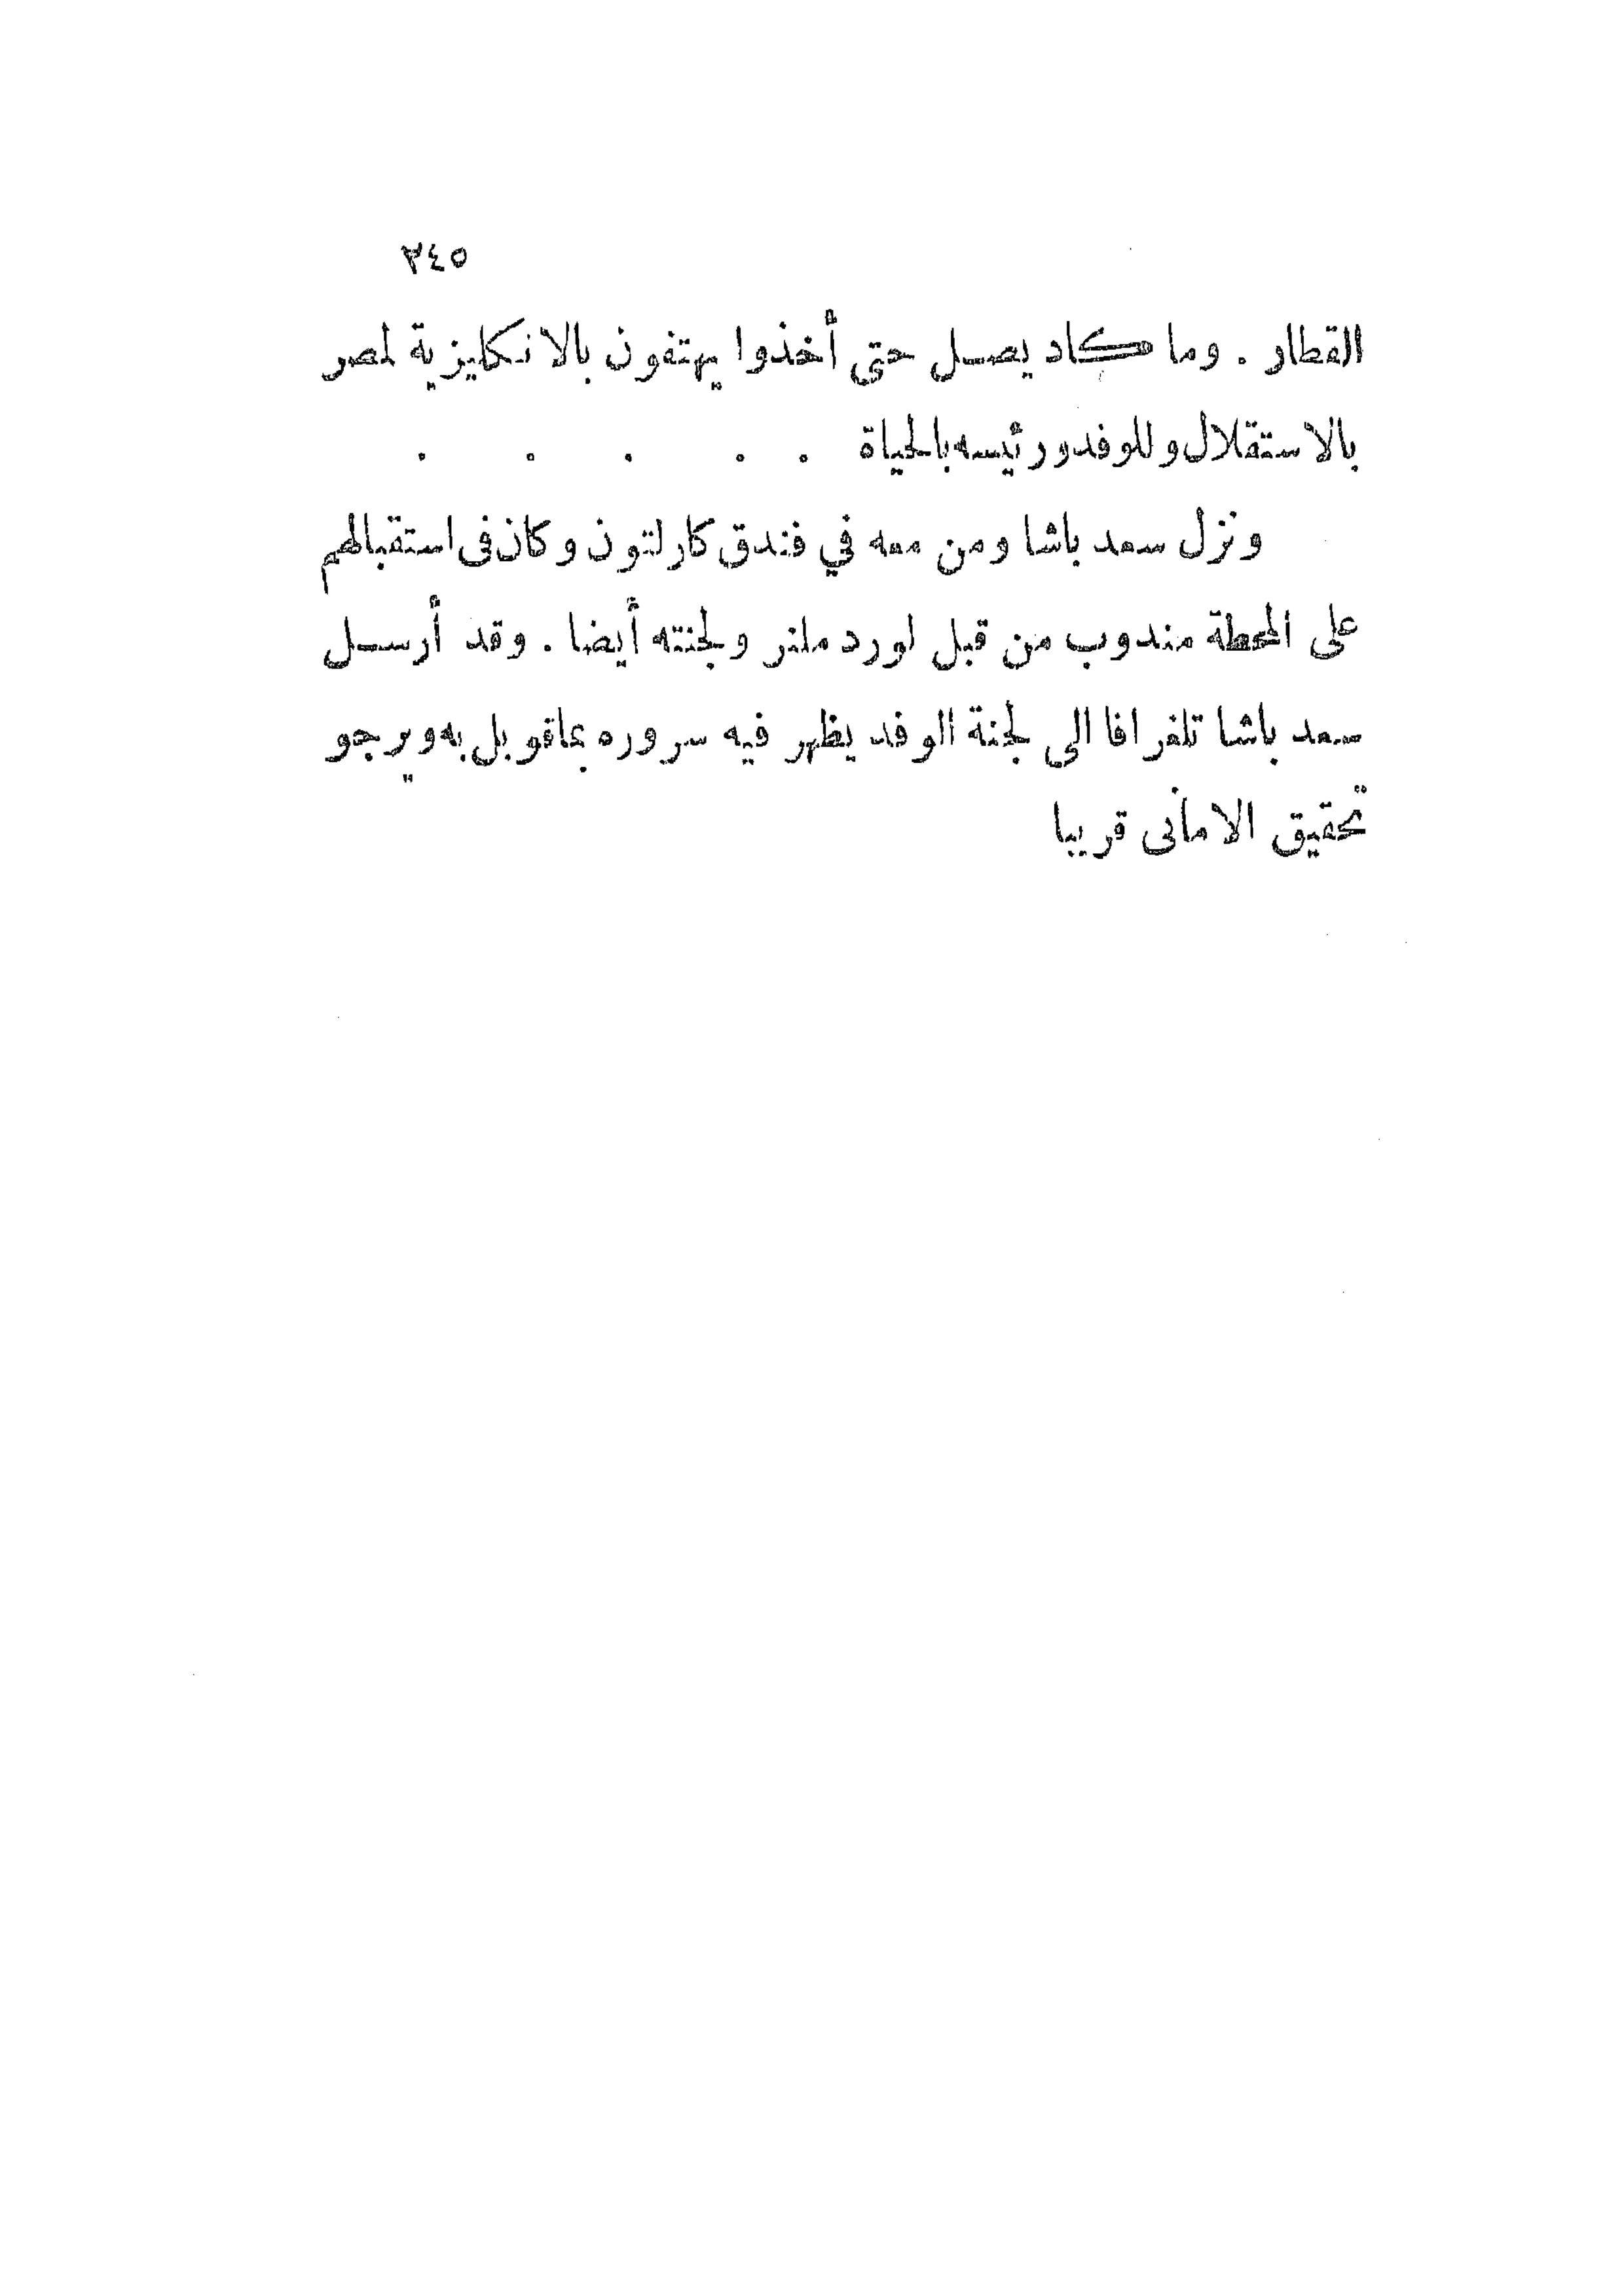 ٣٤٥
القطار . وما كاد يصل حتى أخذوا يهتفون بالانكليزية لمصر
بالاستقلال وللوفد ورئيسه بالحياة . . . . . .
ونزل سعد باشا ومن معه في فندق كارلتون وكان فى استقبالهم
على المحطة مندوب من قبل لورد ملنر ولجنته أيضا . وقد أرسل
سعد باشا تلغرافا الى لجنة الوفد يظهر فيه سروره بماقوبل به ويرجو
تحقيق الامانى قريبا